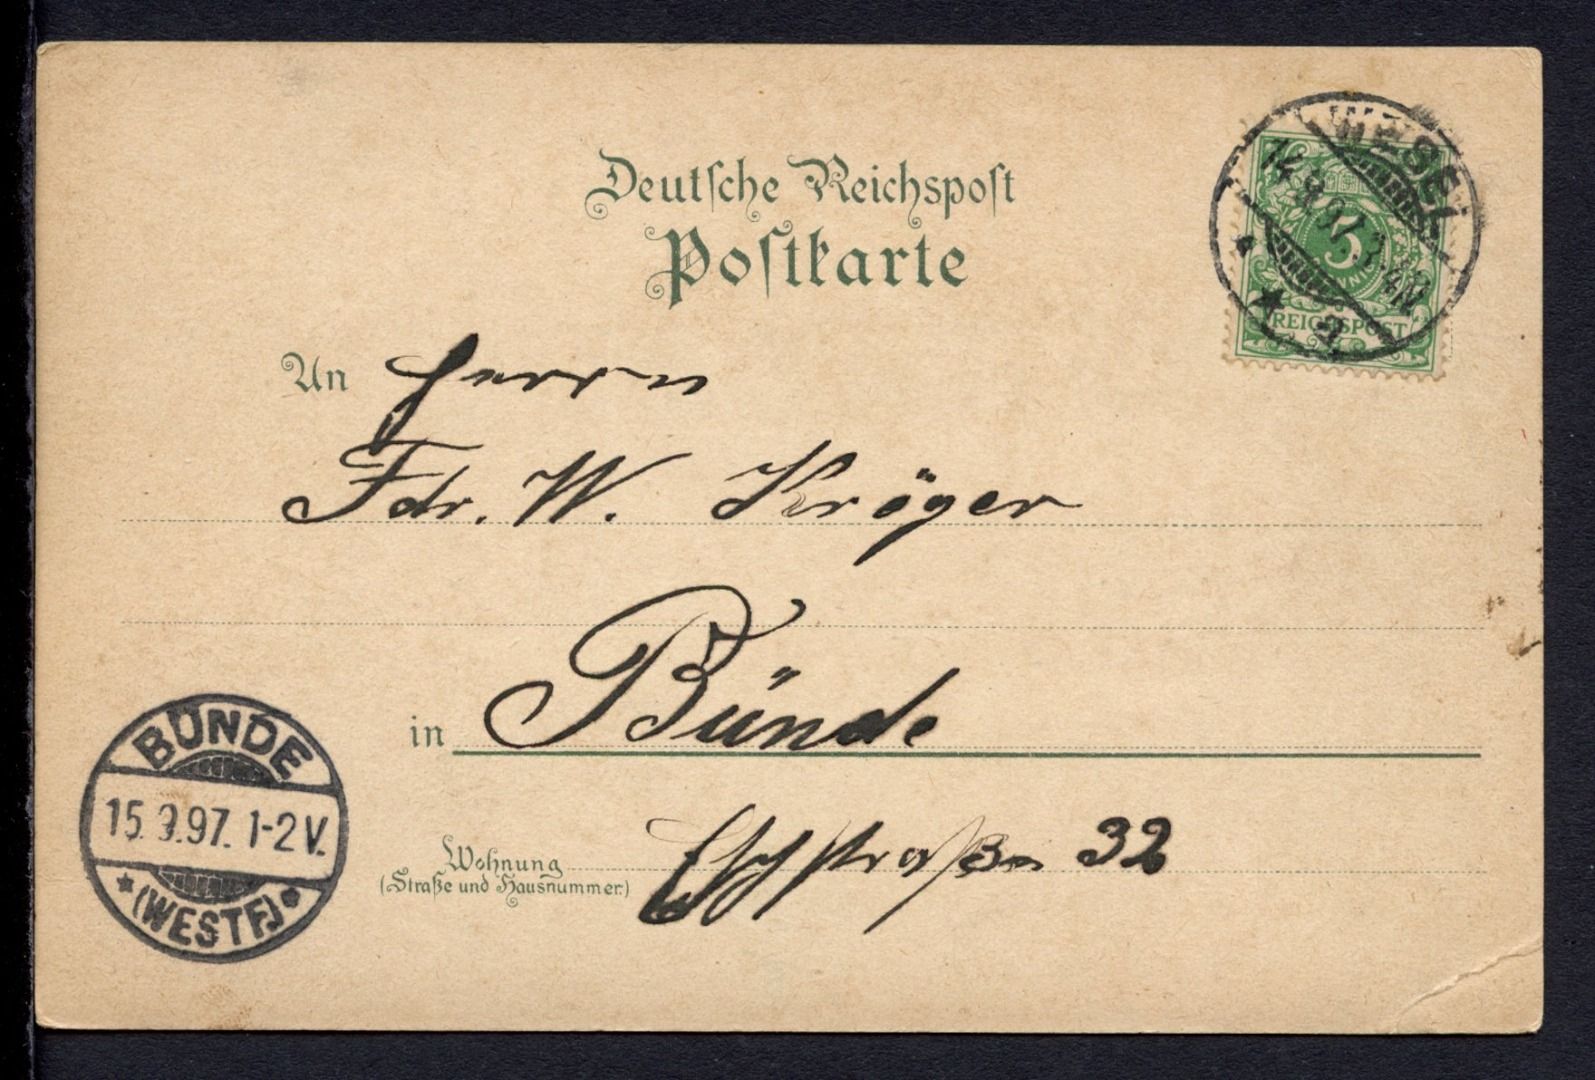 Deutsche Reichspost
Postkarte
WESEL
14.9.97. 3-4N
5
REICHSPOST
An Herrn
Fdr. W. Kröger
in Bünde
Wohnung
(Straße und Hausnummer.)
Eschstraße 32
BÜNDE
15.9.97. 1-2V.
(WESTF.)